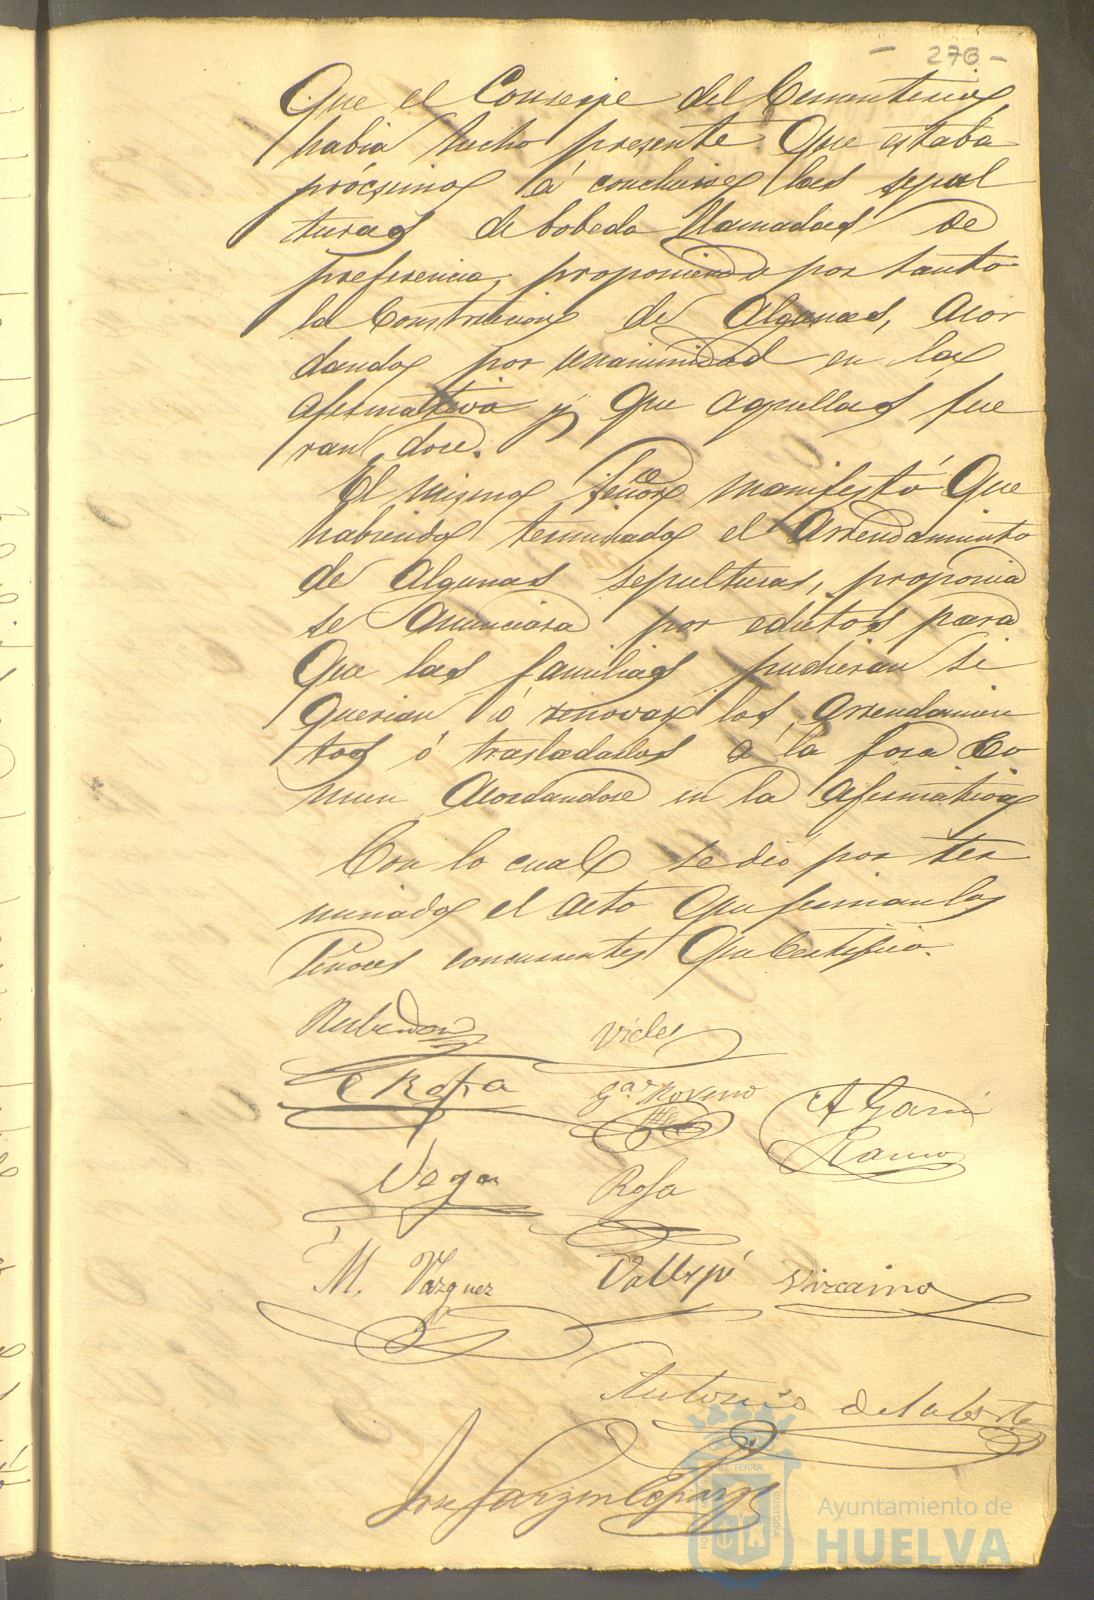 - 276 -
Que el Conserje del Cementerio
había hecho presente que estaba
prócsimo á concluirse las sepul
turas de bobeda llamadas de
preferencia, proponiendo por tanto
la Construcion de Algunas, Acor
dando por unanimidad en la
afirmativa y que aquellas fue
ran doce.
El mismo Señor manifestó que
habiendo terminado el Arrendamiento
de Algunas sepulturas, proponia
se Anunciara por edictos para
que las familias pudieran si
querian ó renovar los arrendamien
tos ó trasladarlos á la fosa Co
mun Acordandose en la Afirmativa
Con lo cual se dió por ter
minado el acto que firman los
Señores concurrentes que Certifico.
Vides
Gª Moreno
A Garcia
Ramo
Vega
Rosa
M. Vazquez
Vallejo Vizcaino
Antonio de la Corte
Jose Garzon
Ayuntamiento de
HUELVA